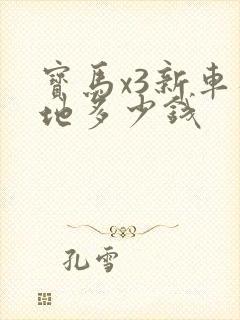 寶馬x3新車
地多少錢
孔雪